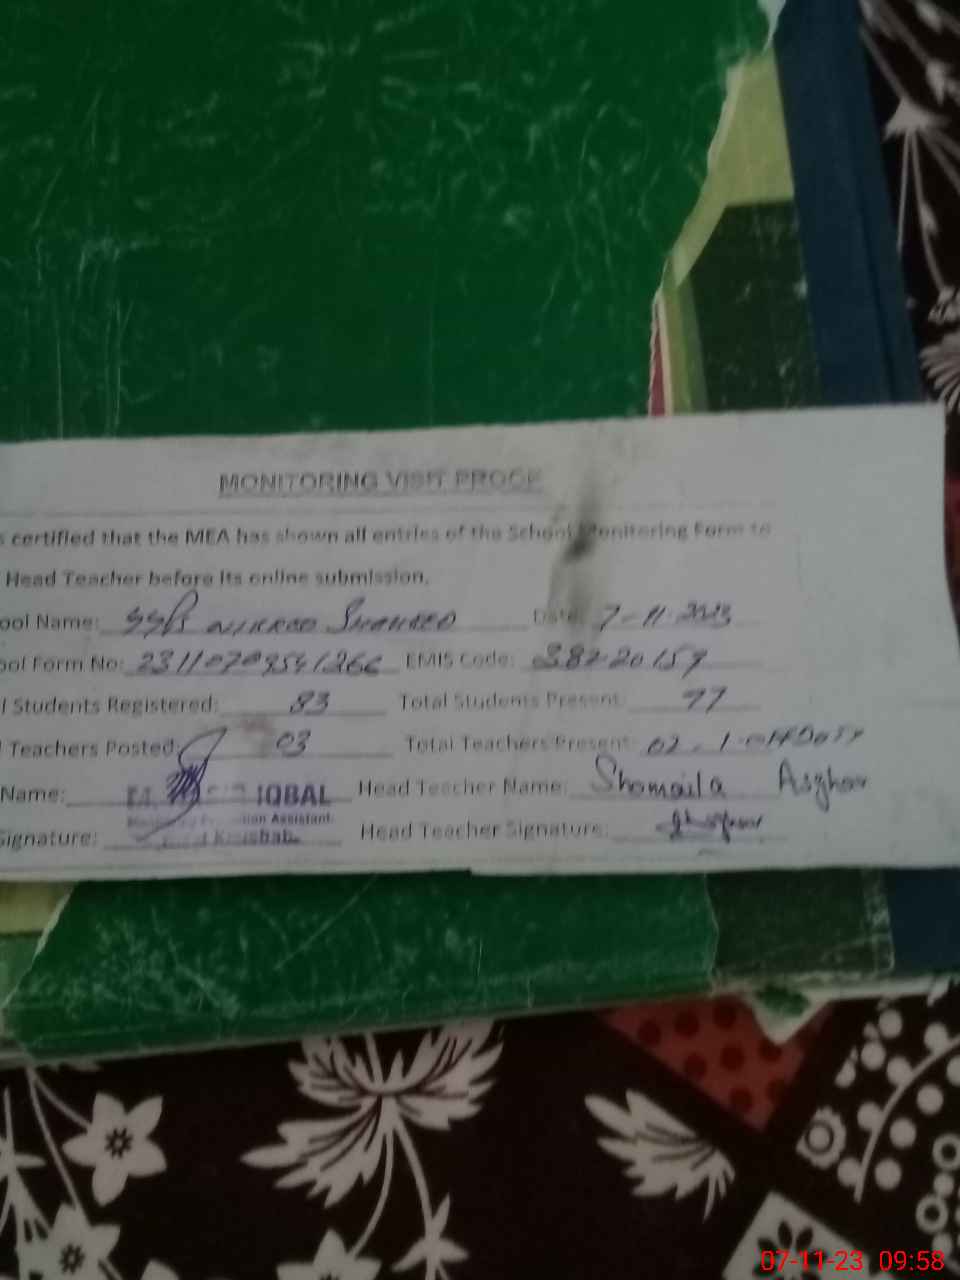 MONITORING VISIT PROOF
s certified that the MEA has shown all entries of the School Monitoring Form to
Head Teacher before its online submission.
ool Name: Date: 7-11-2023
ool Form No: EMIS Code: 38220159
l Students Registered: 83 Total Students Present: 77
l Teachers Posted: 03 Total Teachers Present: 02
Name: IQBAL Head Teacher Name: Shomaila Asghar
Signature: Assistant Head Teacher Signature:
07-11-23 09:58